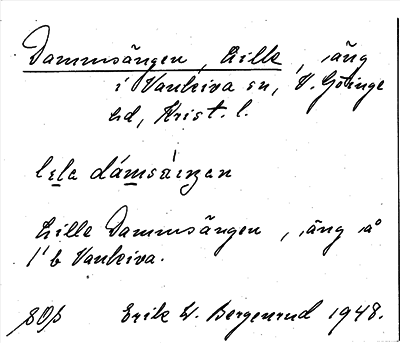 Dammsängen, Lille, äng
i Vankiva sn, V. Göinge
hd, Krist. l.
lela dámsàeŋan
Lille Dammsängen, äng å
1/6 Vankiva.
Erik W. Bergenrud 1948.